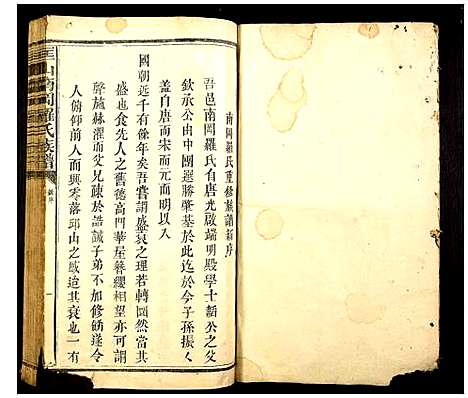 南岡羅氏重修族譜新序
吾邑南岡羅氏有唐光啟端明殿學士韜公之父
欽承公由中團選勝肇基於此迄於今子孫振振
蓋自唐而宋而元而明以入
國朝迄千有餘年矣吾嘗謂盛衰之理若轉圜然當其
盛也食先人之舊德高門華屋簪纓相望亦可謂
聲施赫濯而父兄疎於誥誡子弟不加修飭遂令
人俯仰前人而興零落邱山之感迨其衰也一有
匡山南岡羅氏族譜
新序
一